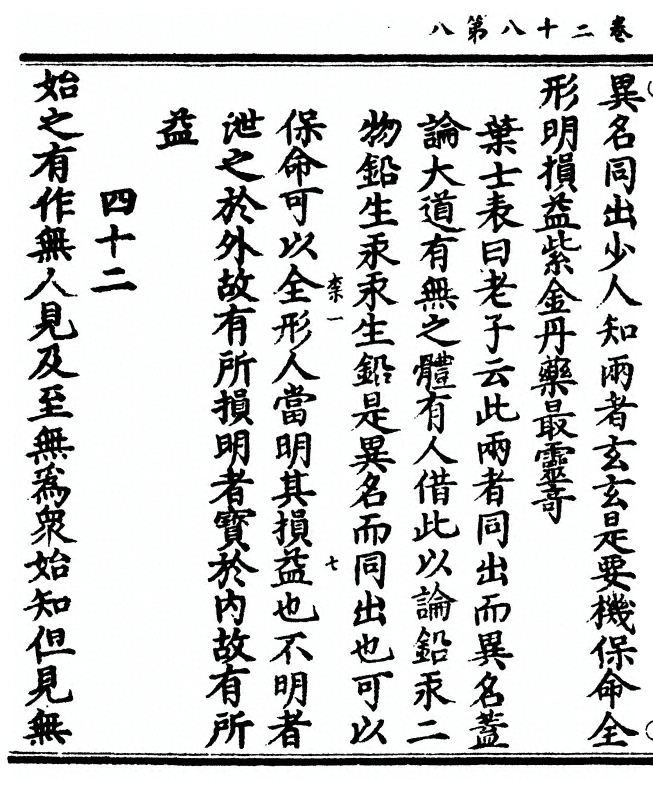 卷二十八第八
異名同出少人知兩者玄玄是要機保命全
形明損益紫金丹藥最靈竒
葉士表曰老子云此兩者同出而異名葢
論大道有無之體有人借此以論鉛汞二
物鉛生汞汞生鉛是異名而同出也可以
柰一
七
保命可以全形人當明其損益也不明者
泄之於外故有所損明者寳於內故有所
益
四十二
始之有作無人見及至無為衆始知但見無